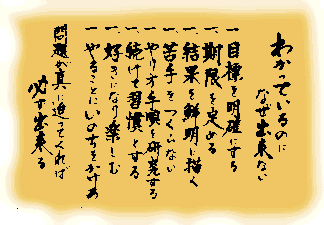 わかっているのに
なぜ出来ない
一、目標を明確にする
一、期限を定める
一、結果を鮮明に描く
一、苦手をつくらない
一、やり方手順を研究する
一、続けて習慣とする
一、好きになり楽しむ
一、やることにいのちをかける
問題が真に迫ってくれば
必ず出来る